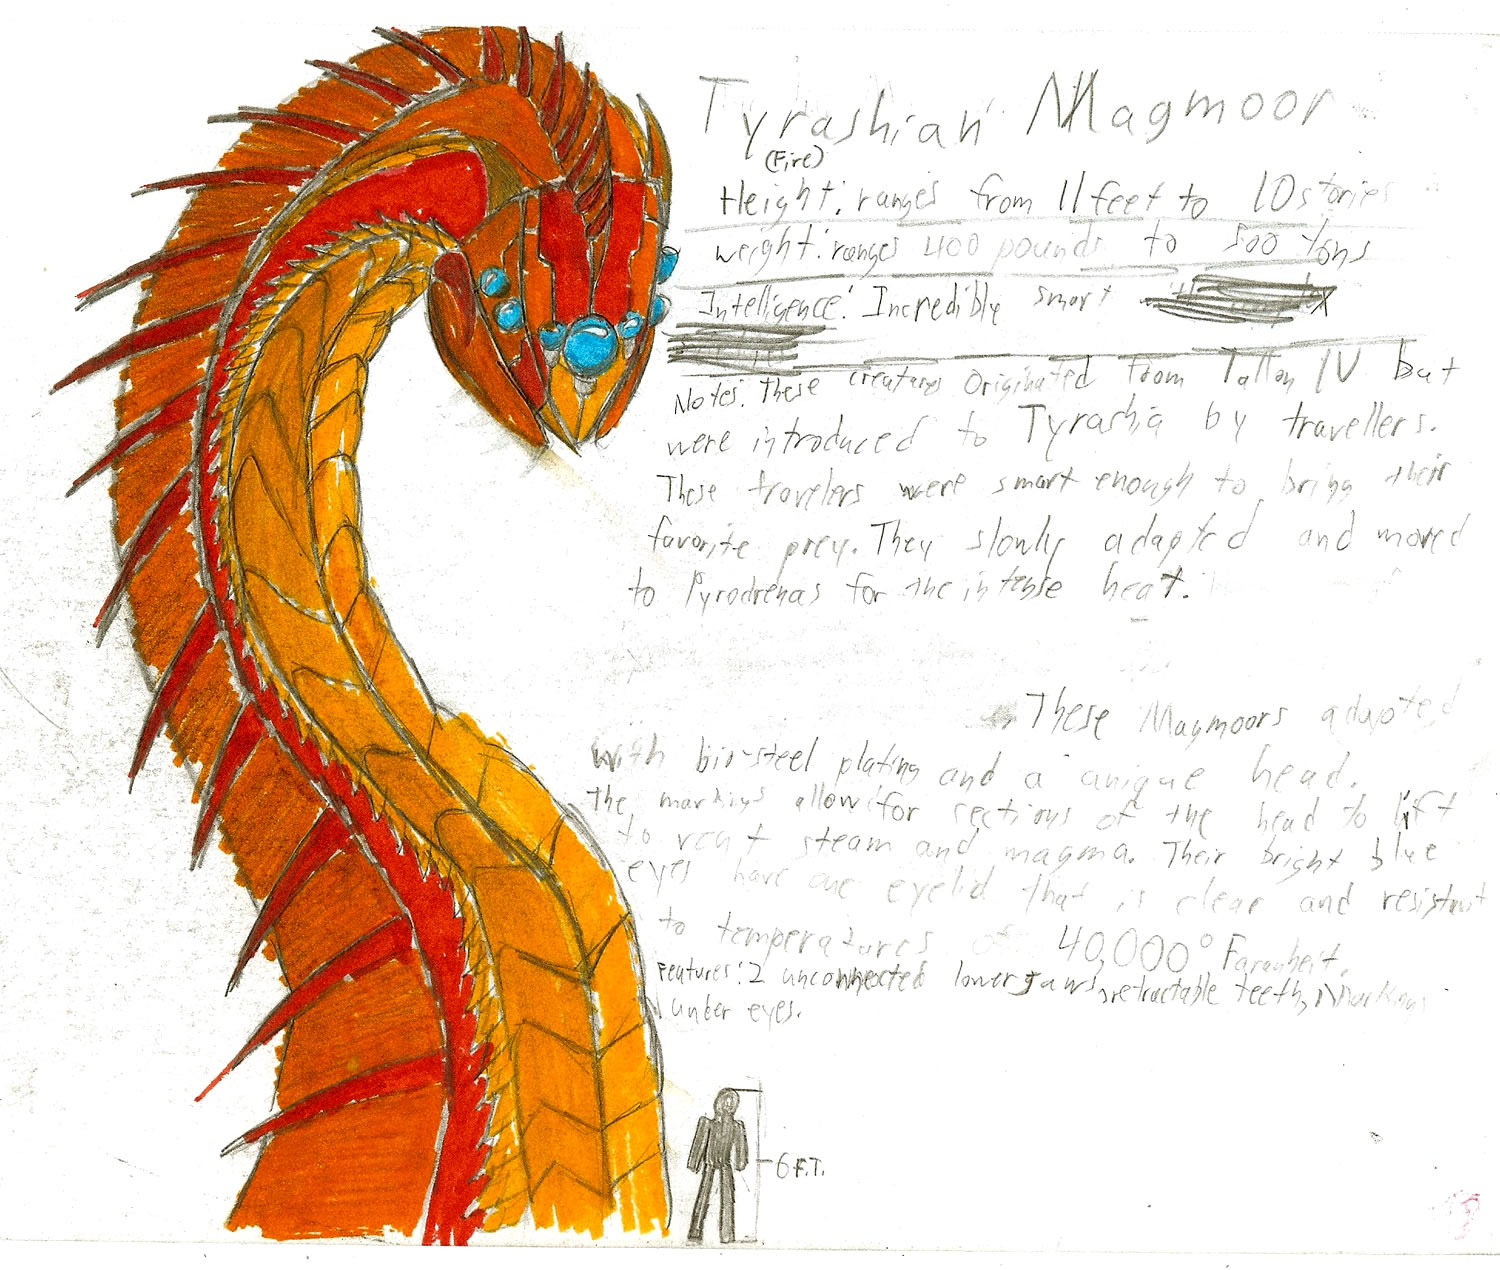 Tyrashian Magmoor
(Fire)
Height: ranges from 11 feet to 10 stories
weight: ranges 400 pounds to 500 tons
Intelligence: Incredibly smart
Notes: These creatures originated from Tallon IV but
were introduced to Tyrashia by travellers.
These travelers were smart enough to bring their
favorite prey. They slowly adapted and moved
to Pyrodrenas for the intense heat.
These Magmoors adapted
with bio-steel plating and a unique head.
The markings allow for sections of the head to lift
to vent steam and magma. Their bright blue
eyes have one eyelid that is clear and resistant
to temperatures of 40,000° Farenheit.
Features: 2 unconnected lower jaws, retractable teeth, Markings
under eyes.
6 F.T.